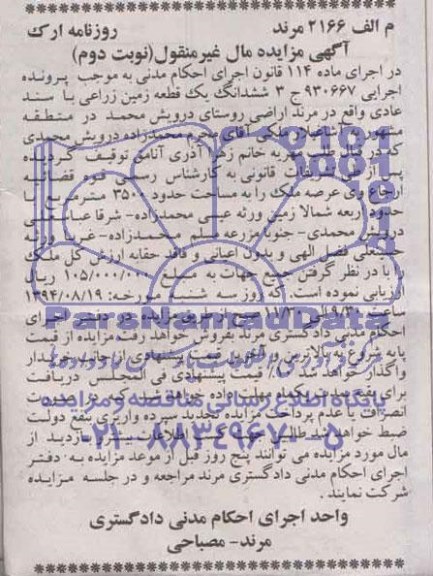 م الف ۲۱۶۶ مرند روزنامه ارک
آگهی مزایده مال غیرمنقول(نوبت دوم)
در اجرای ماده ۱۱۴ قانون اجرای احکام مدنی به موجب پرونده
اجرایی ۹۳۰۶۶۷ ج ۳ ششدانگ یک قطعه زمین زراعی با سند
عادی واقع در مرند اراضی روستای درویش محمد در منطقه
مشهور به آقای محرم محمدزاده درویش محمدی
که در قبال طلب مهریه خانم زهرا آذری آنامق توقیف گردیده
پس از قانونی به کارشناس رسمی قوه قضائیه
ارجاع وی عرصه ملک را به مساحت حدود ۳۵۰۰ مترمربع با
حدود اربعه شمالا زمین ورثه عیسی محمدزاده- شرقا عباسعلی
درویش محمدی- جنوبا مزرعه سلم محمدزاده- غربا ورثه
حسنعلی فضل الهی و بدون اعیانی و فاقد حقابه ارزش کل ملک
را با در نظر گرفتن جمیع جهات به مبلغ ۱۰۵/۰۰۰/۰۰۰ ریال
ارزیابی نموده است. که روز سه شنبه مورخه: ۱۳۹۴/۰۸/۱۹
ساعت ۹/۳۰ الی ۱۱/۳۰ صبح از طریق مزایده در دفتر اجرای
احکام مدنی دادگستری مرند بفروش خواهد رفت مزایده از قیمت
پایه شروع به بالاترین و آخرین قیمت پیشنهادی از جانب خریدار
واگذار خواهد شد ۱۰٪ قیمت پیشنهادی فی المجلس دریافت
برای بقیه یکماه مهلت داده خواهد شد که در صورت
انصراف یا عدم پرداخت مزایده تجدید سپرده واریزی بنفع دولت
ضبط خواهد شد طالبین بازدید از
مال مورد مزایده می توانند پنج روز قبل از موعد مزایده به دفتر
اجرای احکام مدنی دادگستری مرند مراجعه و در جلسه مزایده
شرکت نمایند .
واحد اجرای احکام مدنی دادگستری
مرند- مصباحی
ParsNamadData
پایگاه اطلاع رسانی مناقصه و مزایده
۰۲۱-۸۸۳۴۹۶۷۰-۵